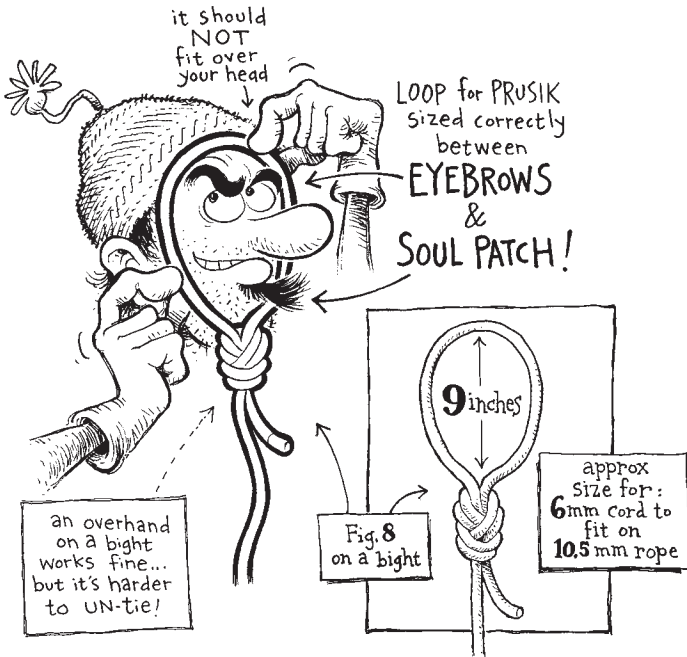 it should
NOT
fit over
your head
LOOP for PRUSIK
sized correctly
between
EYEBROWS
&
SOUL PATCH!
9 inches
approx
size for:
6mm cord to
fit on
10,5 mm rope
an overhand
on a bight
works fine...
but it's harder
to UN-tie!
Fig. 8
on a bight